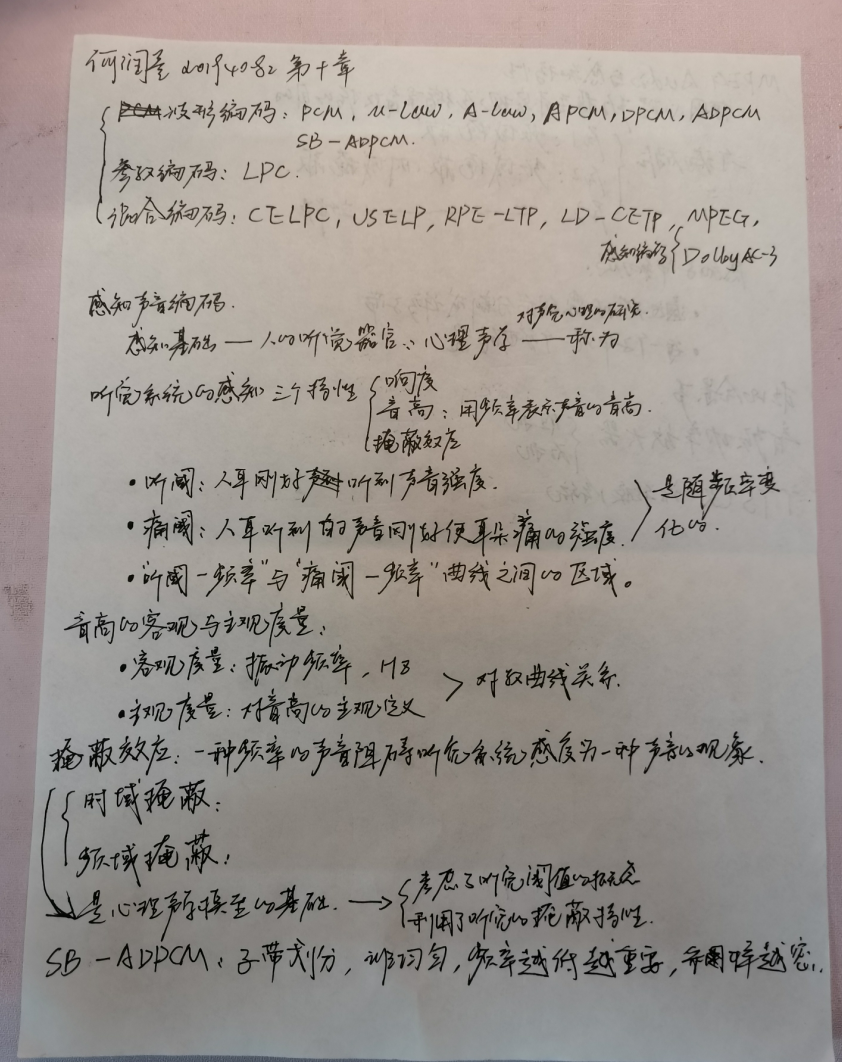 何润圣 20194082 第十章
波形编码：PCM，u-Law，A-Law，APCM，DPCM，ADPCM
SB-ADPCM.
参数编码：LPC.
混合编码：CELPC，VSELP，RPE-LTP，LD-CETP，MPEG，
感知编码 Dolby AC-3
感知声音编码.
对声音心理的研究.
感知基础 — 人的听觉器官、心理声学 —— 称为
听觉系统的感知三个特性
响度
音高：用频率表示声音的音高.
掩蔽效应
·听阈：人耳刚好听到声音强度.
·痛阈：人耳听到的声音刚好使耳朵痛的强度.
是随频率变
化的.
·"听阈-频率"与"痛阈-频率"曲线之间的区域。
音高的客观与主观度量：
·客观度量：振动频率，HZ
·主观度量：对音高的主观定义
对数曲线关系.
掩蔽效应：一种频率的声音阻碍听觉系统感度另一种声音的现象.
时域掩蔽：
频域掩蔽：
是心理声学模型的基础.
考虑了听觉阈值的
利用了听觉的掩蔽特性.
SB-ADPCM：子带划分，非均匀，频率越低越重要，越密.